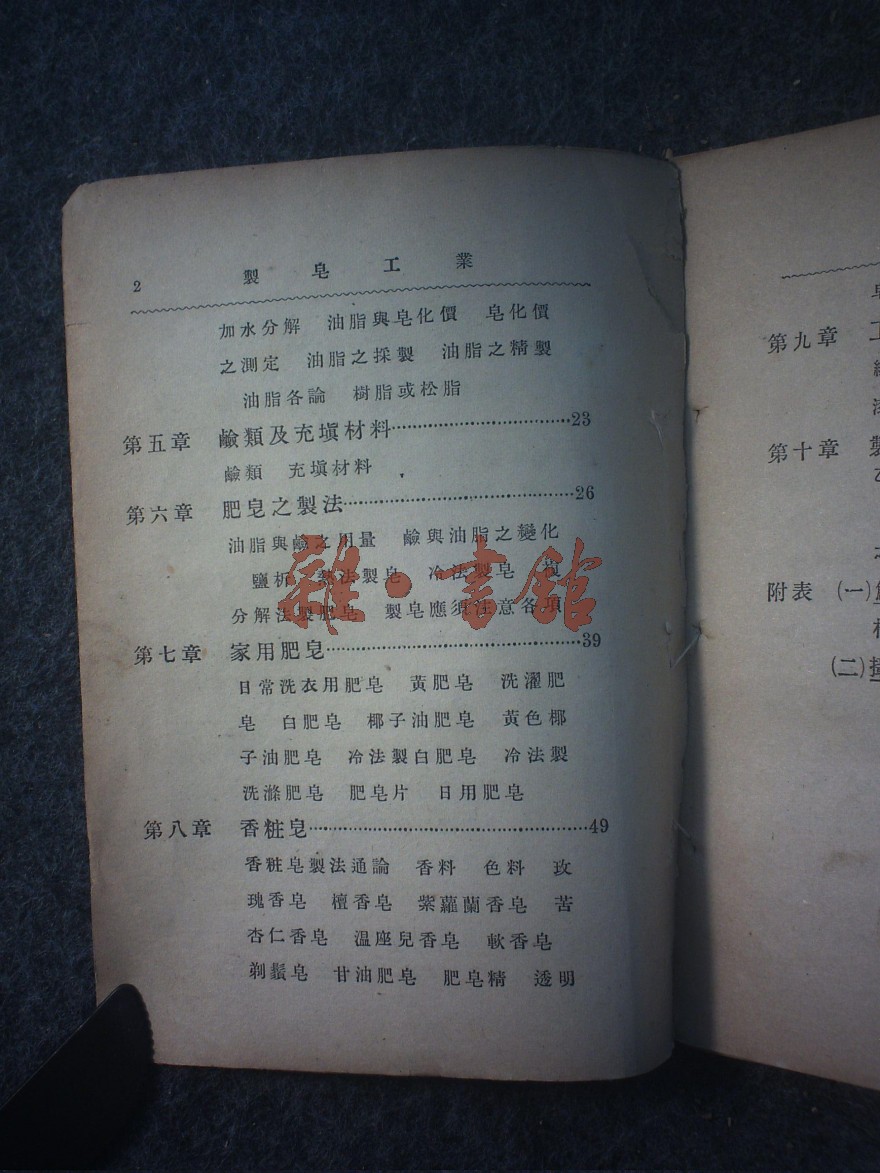 2 製皂工業
加水分解 油脂與皂化價 皂化價
之測定 油脂之採製 油脂之精製
油脂各論 樹脂或松脂
第五章 鹼類及充塡材料……23
鹼類 充塡材料
第六章 肥皂之製法……26
油脂與鹼之用量 鹼與油脂之變化
鹽析 熱法製皂 冷法製皂
分解法製肥皂 製皂應須注意各項
第七章 家用肥皂……39
日常洗衣用肥皂 黃肥皂 洗濯肥
皂 白肥皂 椰子油肥皂 黃色椰
子油肥皂 冷法製白肥皂 冷法製
洗滌肥皂 肥皂片 日用肥皂
第八章 香粧皂……49
香粧皂製法通論 香料 色料 玫
瑰香皂 檀香皂 紫蘿蘭香皂 苦
杏仁香皂 温座兒香皂 軟香皂
剃鬚皂 甘油肥皂 肥皂精 透明
雜·書館
第九章
第十章
附表 (一)
(二)